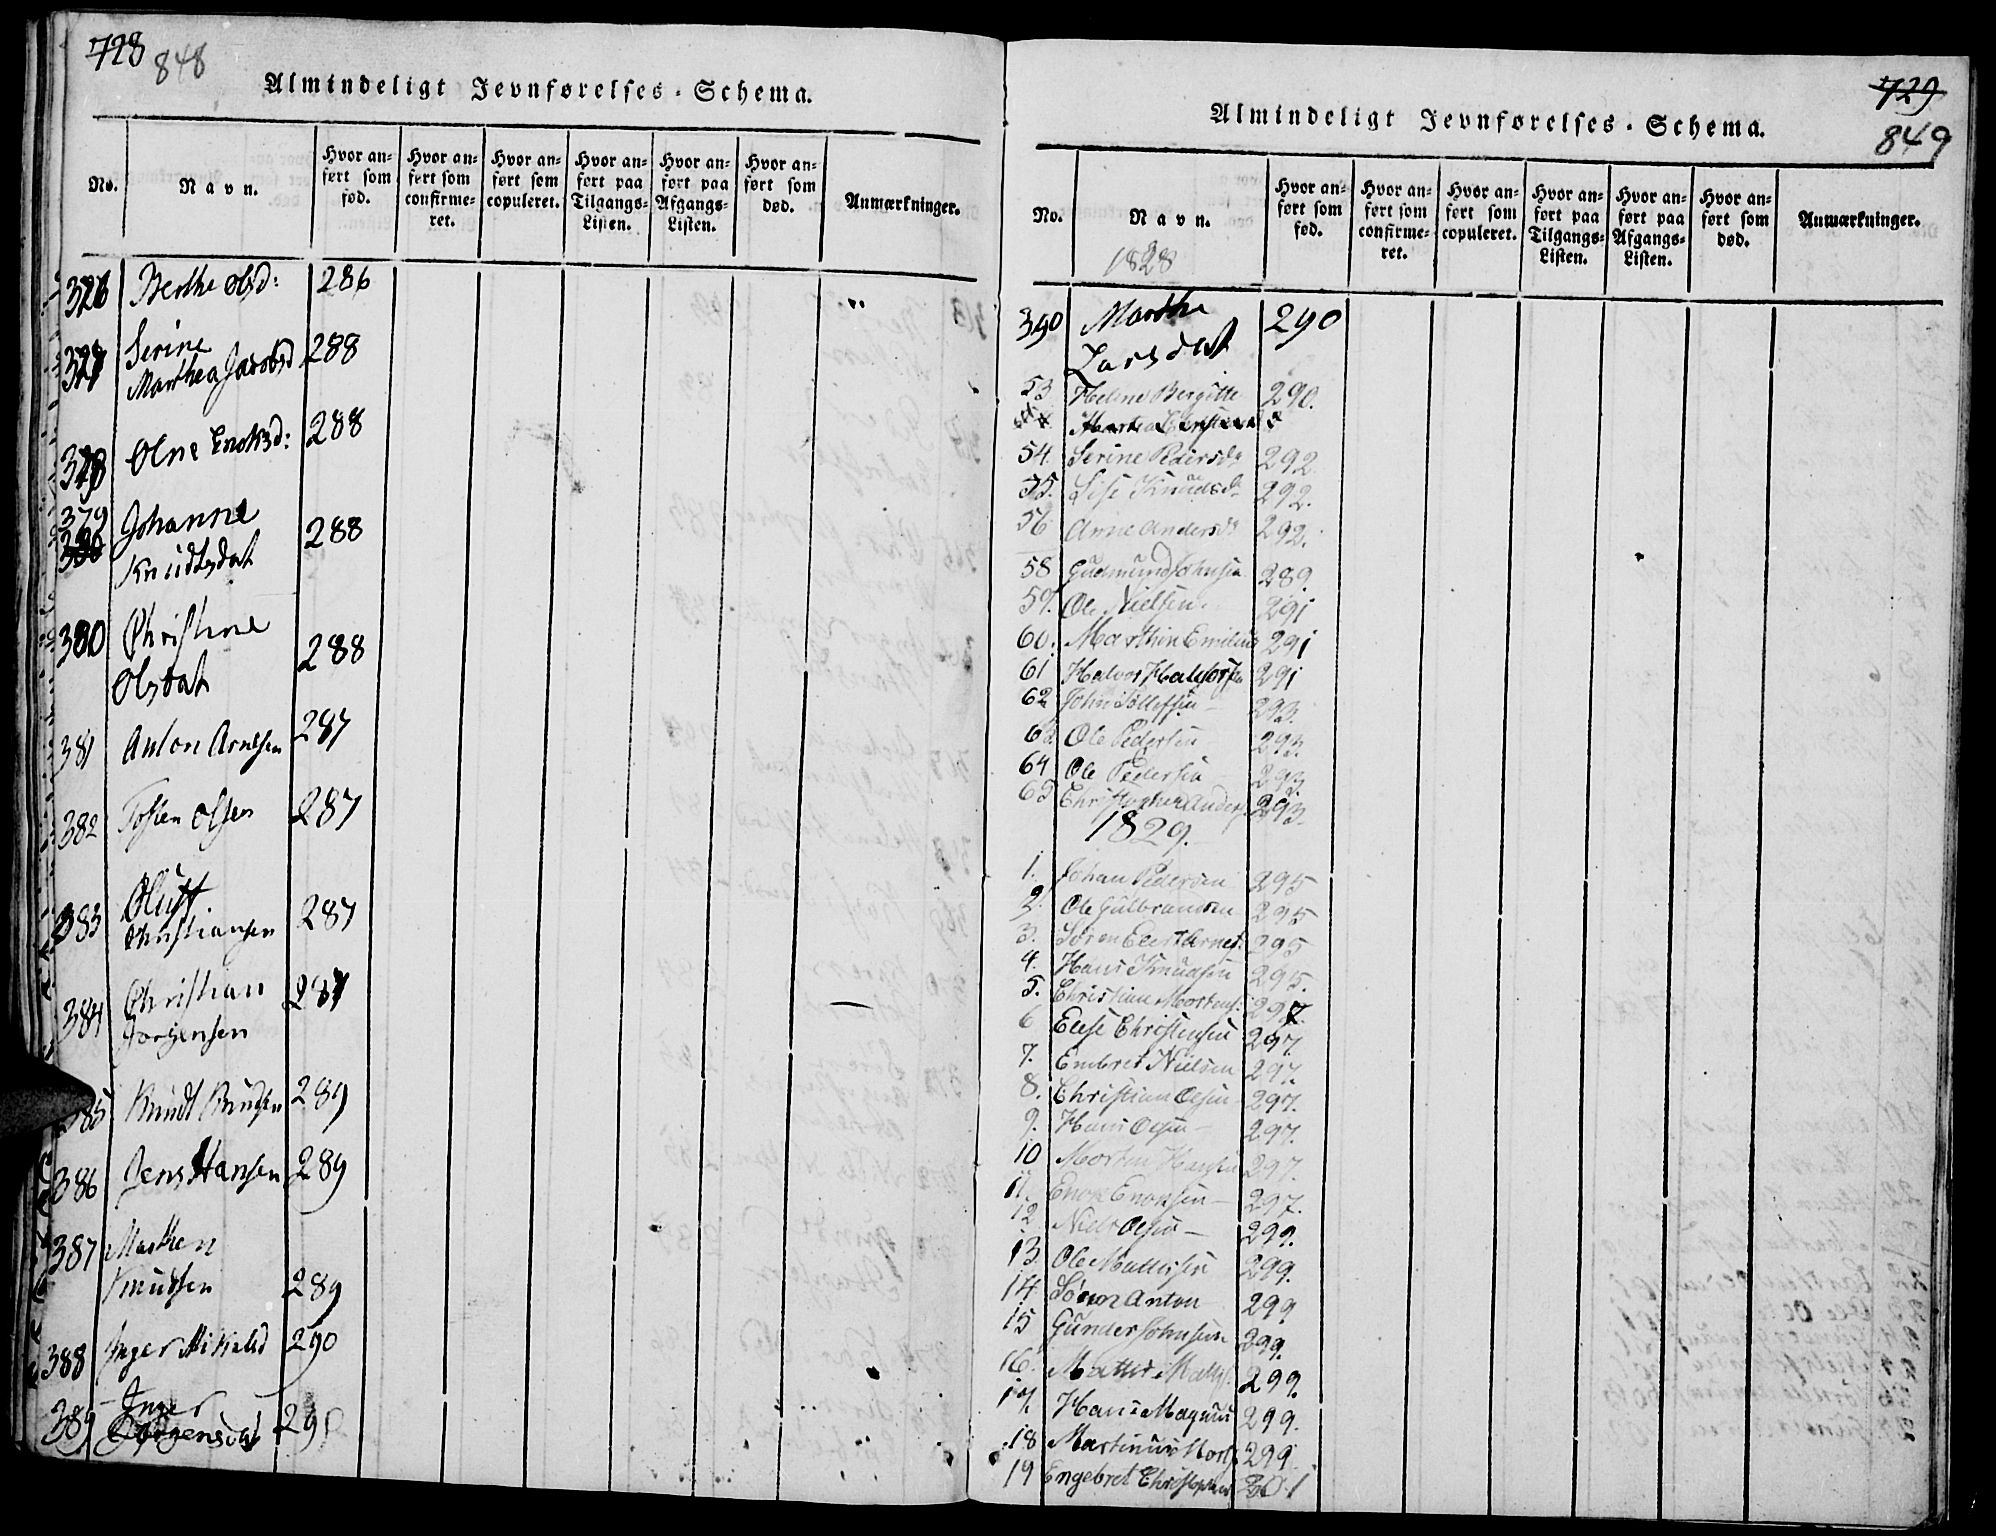 728 848
Almindeligt Jevnførelses-Schema.
No. Navn. Hvor an-ført som fød. Hvor an-ført som confirme-ret. Hvor an-ført som copuleret. Hvor an-ført paa Tilgangs-Listen. Hvor an-ført paa Afgangs-Listen. Hvor an-ført som død. Anmærkninger.
376 Berthe Olsd: 286
377 Serine
Marthea Jacobsd 288
378 Olne Enoksd: 288
379 Johanne
Knudtsdat 288
380 Christine
Olsdat 288
381 Anton Arnesen 287
382 Tosten Olsen 287
383 Oluff
Christiansen 287
384 Christian
Jorgensen 287
385 Knudt Knudsen 289
386 Jens Hansen 289
387 Marthen
Knudsen 289
388 Inger Mikelsd 290
389 Inger
Jørgensdat 290
729
849
Almindeligt Jevnførelses-Schema.
No. Navn. Hvor an-ført som fød. Hvor an-ført som confirme-ret. Hvor an-ført som copuleret. Hvor an-ført paa Tilgangs-Listen. Hvor an-ført paa Afgangs-Listen. Hvor an-ført som død. Anmærkninger.
1828
390 Marthe
Larsdat 290
53 Heline Bergitte 290.
54. Serine Pedersdr 292
55. Lise Knudsdr 292.
56 Anne Andersdr 292.
58 Gudmund Johnsen 289.
59. Ole Nielsen. 291
60. Marthin Emilius 291
61 Halvor Halvorsen 291
62 John Tollefsen 293.
63 Ole Pedersen 293.
64 Ole Pedersen 293.
65 Christopher Anders. 293.
1829.
1. Johan Pedersen 295
2. Ole Gulbrandsen 295
3. Søren Elert Arnes. 295
4. Hans Knudsen 295.
5. Christian Mortens. 297.
6 Else Christensen 297.
7. Embret Nielsen 297.
8. Christian Olsen 297.
9. Hans Olsen 297.
10 Morten Hansen 297.
11. Enok Enoksen 297.
12 Niels Olsen 299.
13 Ole Mathisen 299.
14 Søren Anton 299
15 Gunder Johnsen 299.
16. Mathis Mathis. 299.
17. Hans Magnus 299.
18 Martinus Mort. 299.
19 Engebret Christophers 301